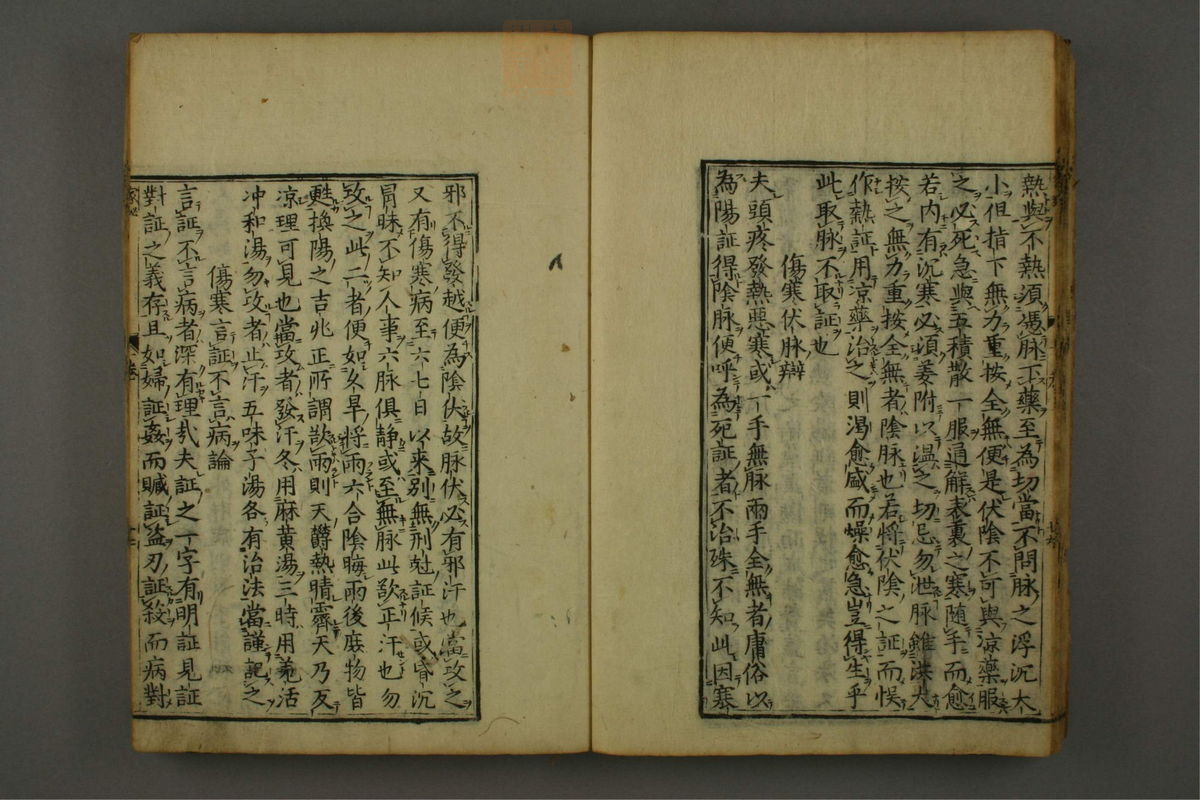 熱與不熱須憑脉下藥至為切當不問脉之浮沉大
小但指下無力重按全無便是伏陰不可與涼藥服
之必死急與五積散一服通解表裏之寒随手而愈
若内有沉寒必須姜附以温之切忌勿泄脉雖洪大
按之無力重按全無者陰脉也若將伏陰之証而悮
作熱証用涼藥治之則渴愈盛而燥愈急豈得生乎
此取脉不取証也
傷寒伏脉辯
夫頭疼發熱惡寒或一手無脉兩手全無者庸俗以
為陽証得陰脉便呼為死証者不治殊不知此因寒
邪不得發越便為陰伏故脉伏必有邪汗也當攻之
又有傷寒病至六七日以来别無刑尅証候或昏沉
冐昧不知人事六脉俱静或至無脉此欲正汗也勿
攻之此二者便如久旱將雨六合陰晦雨後庶物皆
甦換陽之吉兆正所謂欲雨則天欝熱晴霽天乃反
涼理可見也當攻者發汗冬用麻黄湯三時用羗活
冲和湯勿攻者止汗五味子湯各有治法當謹記之
傷寒言証不言病論
言証不言病者深有理㢤夫証之一字有明証見証
對証之義存且如婦証姦而贓証盗刃証殺而病對